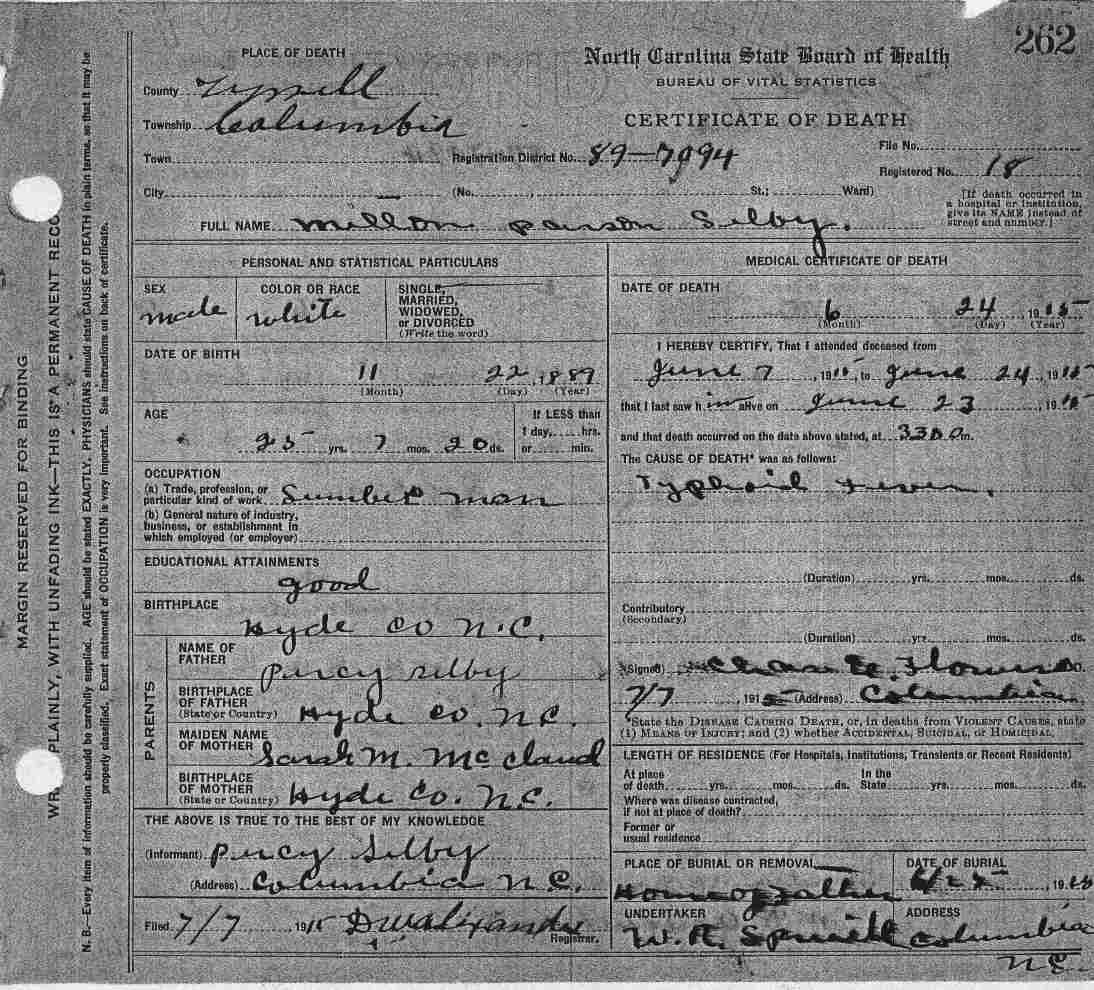 262
PLACE OF DEATH
North Carolina State Board of Health
BUREAU OF VITAL STATISTICS
CERTIFICATE OF DEATH
County Tyrrell
Township Columbia
Town Registration District No. 89-7994
File No.
Registered No. 18
City (No. , St.; Ward)
[If death occurred in
a hospital or institution,
give its NAME instead of
street and number.]
FULL NAME Milton Parson Selby.
PERSONAL AND STATISTICAL PARTICULARS
SEX
male
COLOR OR RACE
white
SINGLE,
MARRIED,
WIDOWED,
or DIVORCED
(Write the word)
DATE OF BIRTH
11 22, 1889
(Month) (Day) (Year)
AGE
25 yrs. 7 mos. 20 ds.
If LESS than
1 day, hrs.
or min.
OCCUPATION
(a) Trade, profession, or
particular kind of work Lumber man
(b) General nature of industry,
business, or establishment in
which employed (or employer)
EDUCATIONAL ATTAINMENTS
good
BIRTHPLACE
Hyde Co N.C.
PARENTS
NAME OF
FATHER
Percy Selby
BIRTHPLACE
OF FATHER
(State or Country) Hyde Co. N.C.
MAIDEN NAME
OF MOTHER
Sarah M. McClaud
BIRTHPLACE
OF MOTHER
(State or Country) Hyde Co. N.C.
THE ABOVE IS TRUE TO THE BEST OF MY KNOWLEDGE
(Informant) Percy Selby
(Address) Columbia N.C.
Filed 7/7 1915
Registrar.
MEDICAL CERTIFICATE OF DEATH
DATE OF DEATH
6 24, 1915
(Month) (Day) (Year)
I HEREBY CERTIFY, That I attended deceased from
June 7, 1915, to June 24, 1915
that I last saw him alive on June 23, 1915
and that death occurred on the date above stated, at m.
The CAUSE OF DEATH* was as follows:
Typhoid Fever.
(Duration) yrs. mos. ds.
Contributory
(Secondary)
(Duration) yrs. mos. ds.
(Signed)
7/7, 1915 (Address) Columbia
*State the DISEASE CAUSING DEATH, or, in deaths from VIOLENT CAUSES, state
(1) MEANS OF INJURY; and (2) whether ACCIDENTAL, SUICIDAL, or HOMICIDAL.
LENGTH OF RESIDENCE (For Hospitals, Institutions, Transients or Recent Residents)
At place
of death yrs. mos. ds.
In the
State yrs. mos. ds.
Where was disease contracted,
if not at place of death?
Former or
usual residence
PLACE OF BURIAL OR REMOVAL
Home of Father
DATE OF BURIAL
6/25, 1915
UNDERTAKER
W. R. Spruill
ADDRESS
Columbia
N.C.
MARGIN RESERVED FOR BINDING
PLAINLY, WITH UNFADING INK—THIS IS A PERMANENT RECO
N. B.—Every item of information should be carefully supplied. AGE should be stated EXACTLY. PHYSICIANS should state CAUSE OF DEATH in plain terms, so that it may be
properly classified. Exact statement of OCCUPATION is very important. See instructions on back of certificate.